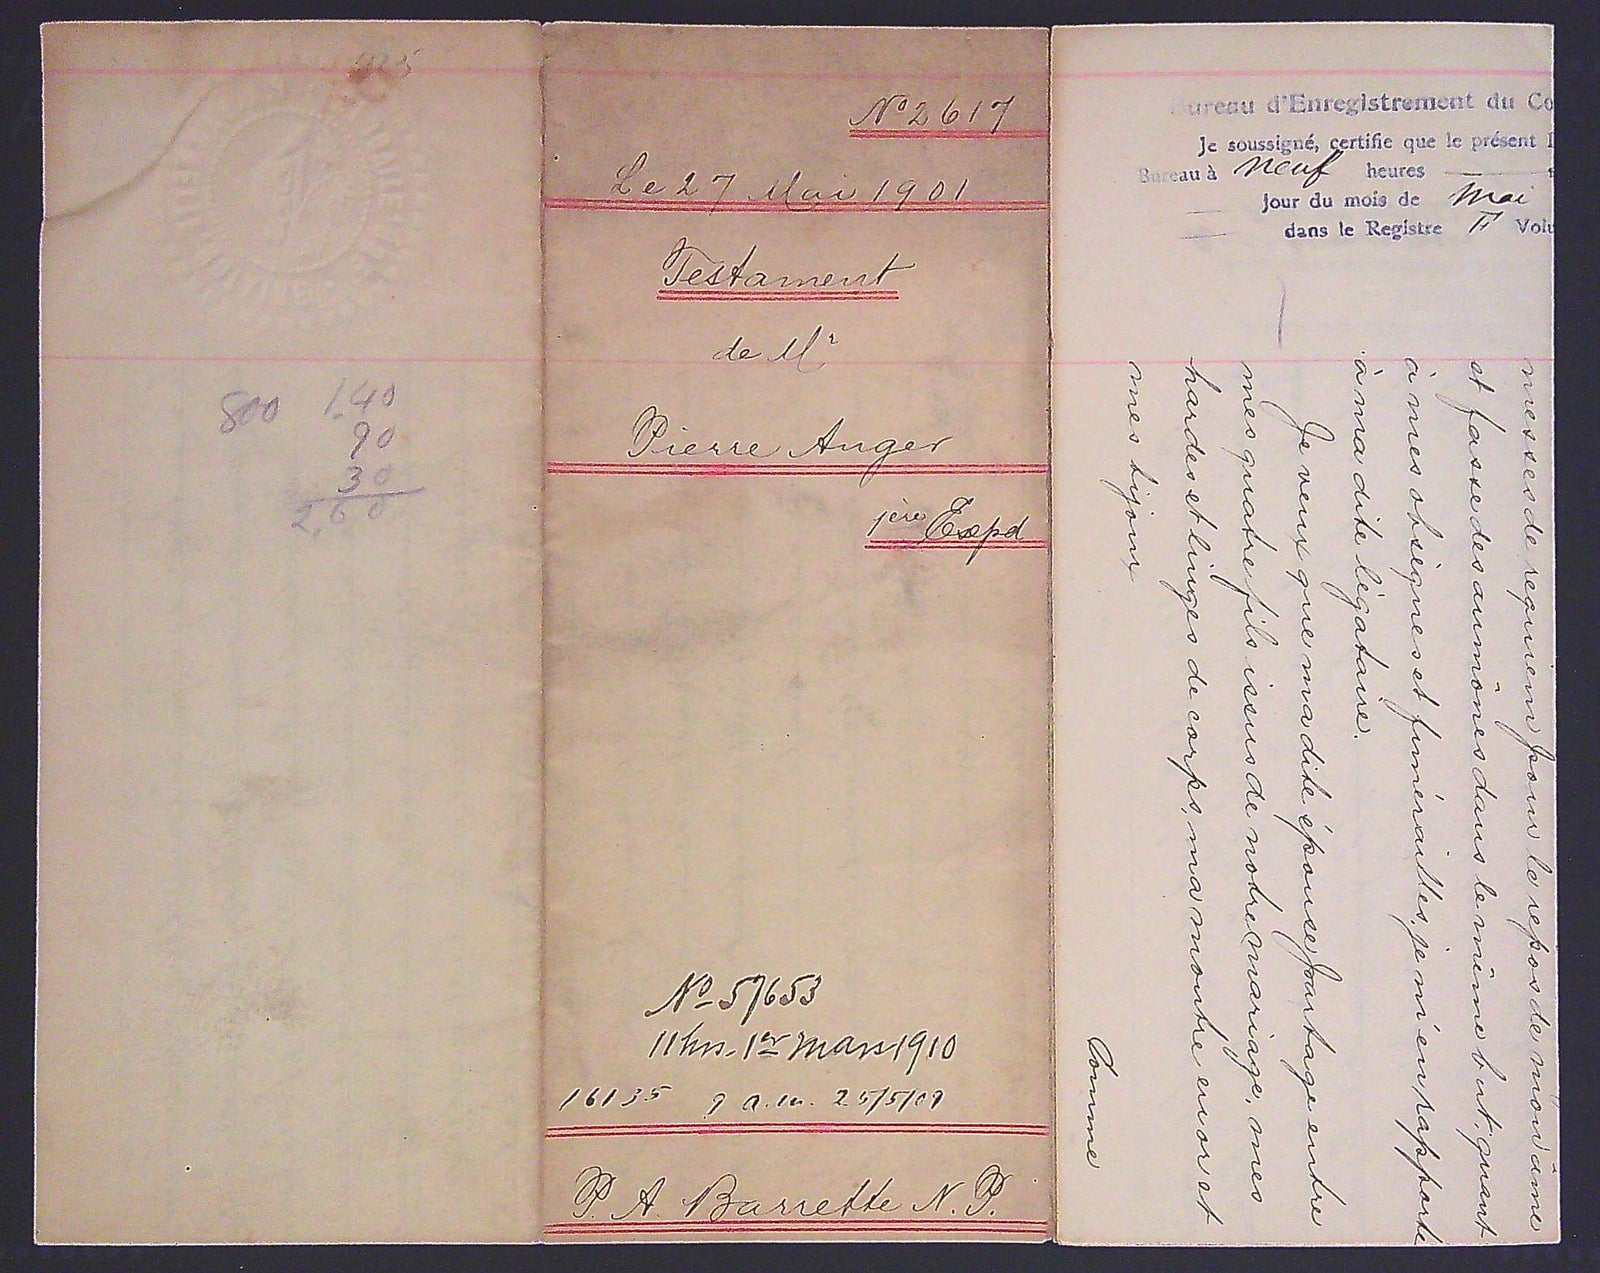 800 1.40
90
30
2,60
Nº 2617
Le 27 Mai 1901
Testament
de Mr
Pierre Anger
1ère Expd
Nº 57653
11 hrs. 1er Mars 1910
16135 9 a.m. 25/5/09
P. A. Barrette N. P.
Bureau d'Enregistrement du Co
Je soussigné, certifie que le présent
Bureau à neuf heures
jour du mois de mai
dans le Registre F Volu
messes de requiem pour le repos de mon âme
et fasse des aumônes dans le même but; quant
à mes obsèques et funérailles, je m'en rapporte
à ma dite légataire.
Je veux que ma dite épouse partage entre
mes quatre fils issus de notre mariage, mes
hardes et linges de corps, ma montre en or et
mes bijoux
Comme